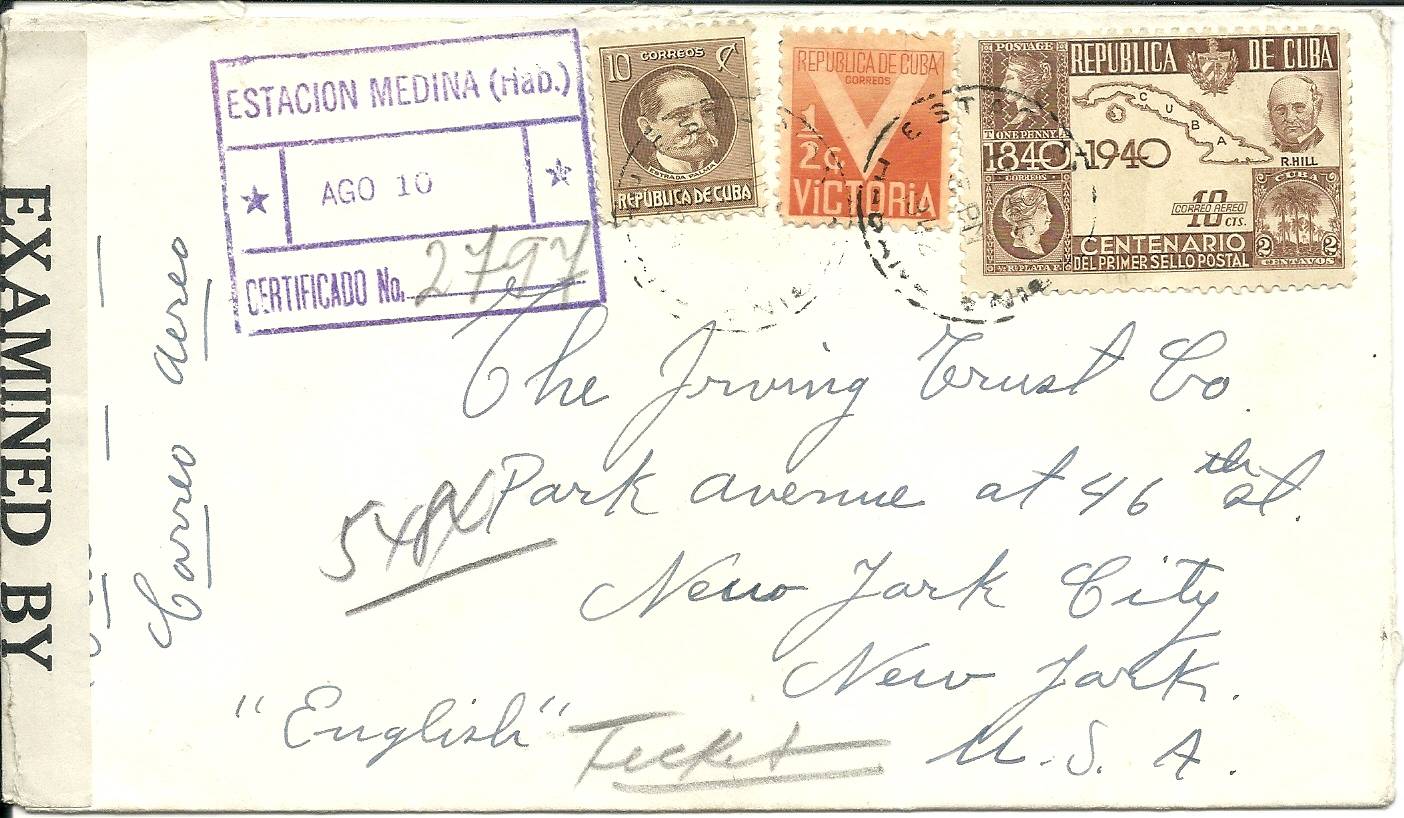 EXAMINED BY
Correo aereo
ESTACION MEDINA (Hab.)
AGO 10
CERTIFICADO No. 2797
10 CORREOS
ESTRADA PALMA
REPUBLICA DE CUBA
REPUBLICA DE CUBA
CORREOS
1/2 c.
VICTORIA
POSTAGE
ONE PENNY
REPUBLICA DE CUBA
CUBA
R.HILL
1840 1940
CORREOS
10 CTS.
CORREO AEREO
CUBA
2 2
CENTAVOS
½ Rl. PLATA F.
CENTENARIO
DEL PRIMER SELLO POSTAL
The Irving Trust Co.
Park avenue at 46th st.
New York City
New York.
U. S. A.
"English"